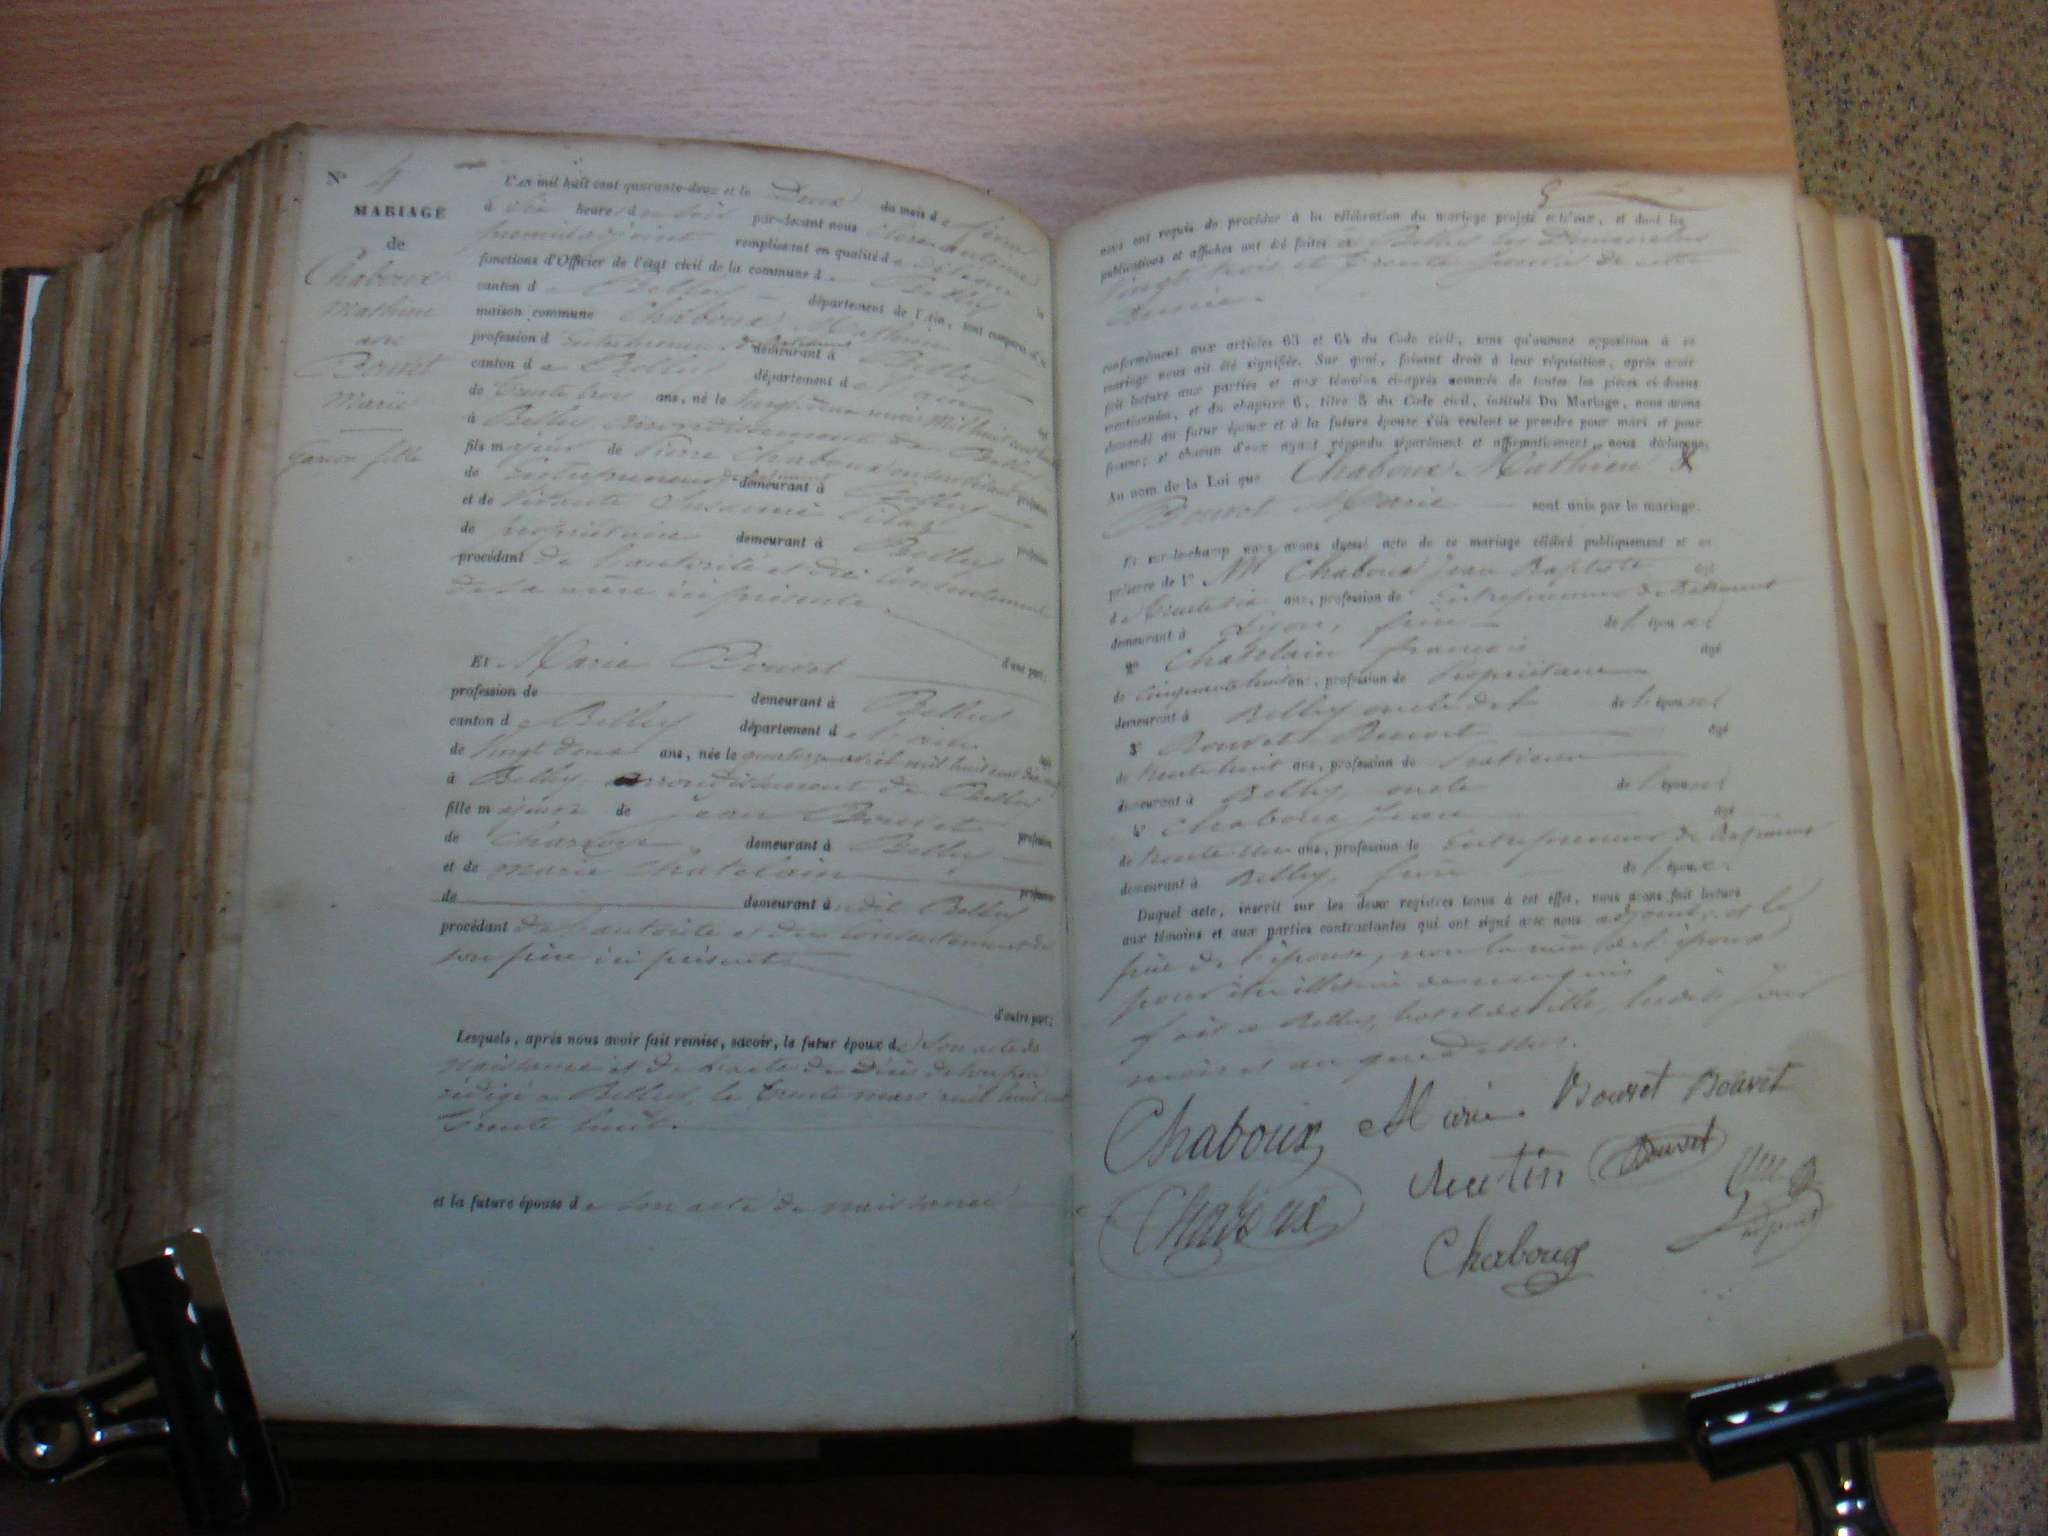 N° 4
MARIAGE
de
Chaboux
Mathieu
avec
Bouvet
Marie
garçon fille
L'an mil huit cent quarante-deux et le Deux du mois de
à heure du soir par-devant nous
premier adjoint remplissant en qualité de les
fonctions d'Officier de l'état civil de la commune de Belley
canton de Belley département de l'Ain, sont comparus en la
maison commune Chaboux Mathieu
profession d'entrepreneur de Batiment demeurant à Belley
canton de Belley département de l'ain âgé
de trente trois ans, né le vingt deux mil huit cent
à Belley, arrondissement de Belley
fils majeur de Pierre Chaboux profession
de Entrepreneur demeurant à Belley
et de vivante Susanne profession
de propriétaire demeurant à Belley
procédant de l'autorité et du consentement
de sa mère ici présente
d'une part;
Et Marie Bouvet
profession de demeurant à Belley
canton de Belley département de l'ain âgée
de vingt deux ans, née le avril mil huit cent
à Belley, arrondissement de Belley
fille majeure de jean Bouvet profession
de demeurant à Belley
et de marie chatelain profession
de demeurant audit Belley
procédant de l'autorité et du consentement de
son père ici présent
d'autre part;
Lesquels, après nous avoir fait remise, savoir, le futur époux de son acte de
naissance et de l'acte de décès de son père
rédigé à Belley, le trente mars mil huit cent
trente huit.
et la future épouse de son acte de naissance
5
nous ont requis de procéder à la célébration du mariage projeté entr'eux, et dont les
publications et affiches ont été faites à Belley les dimanches
vingt trois et trente janvier de cette
année.
conformément aux articles 63 et 64 du Code civil, sans qu'aucune opposition à ce
mariage nous ait été signifiée. Sur quoi, faisant droit à leur réquisition, après avoir
fait lecture aux parties et aux témoins ci-après nommés de toutes les pièces ci-dessus
mentionnées, et du chapitre 6, titre 5 du Code civil, intitulé Du Mariage, nous avons
demandé au futur époux et à la future épouse s'ils veulent se prendre pour mari et pour
femme; et chacun d'eux ayant répondu séparément et affirmativement, nous déclarons,
Au nom de la Loi que Chaboux Mathieu &
Bouvet Marie sont unis par le mariage.
Et sur-le-champ nous avons dressé acte de ce mariage célébré publiquement et en
présence de 1° Mr Chaboux jean Baptiste âgé
de trente six ans, profession de Entrepreneur de Batiment
demeurant à Lyon, frère de l'époux
2° Chatelain françois âgé
de cinquante huit ans, profession de Propriétaire
demeurant à Belley oncle de l'épouse
3° Bouvet Benoit âgé
de trente huit ans, profession de
demeurant à Belley, oncle de l'épouse
4° Chaboux Jean âgé
de trente un ans, profession de Entrepreneur de Batiment
demeurant à Belley, frère de l'époux.
Duquel acte, inscrit sur les deux registres tenus à cet effet, nous avons fait lecture
aux témoins et aux parties contractantes qui ont signé avec nous adjoint, et le
père de l'épouse, non la mère de l'époux
pour être illétrée de ce requis
fait à Belley, hotel de ville, lesdits jour
mois et an que dessus.
Chaboux Marie Bouvet Bouvet
Bouvet
Chaboux
Chaboux
adjoint